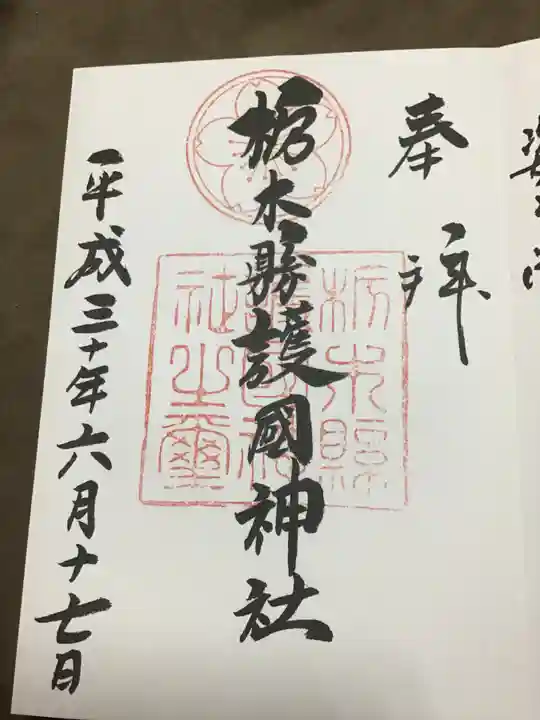 奉拝
栃木縣護國神社
栃木縣
護國神
社之璽
平成三十年六月十七日